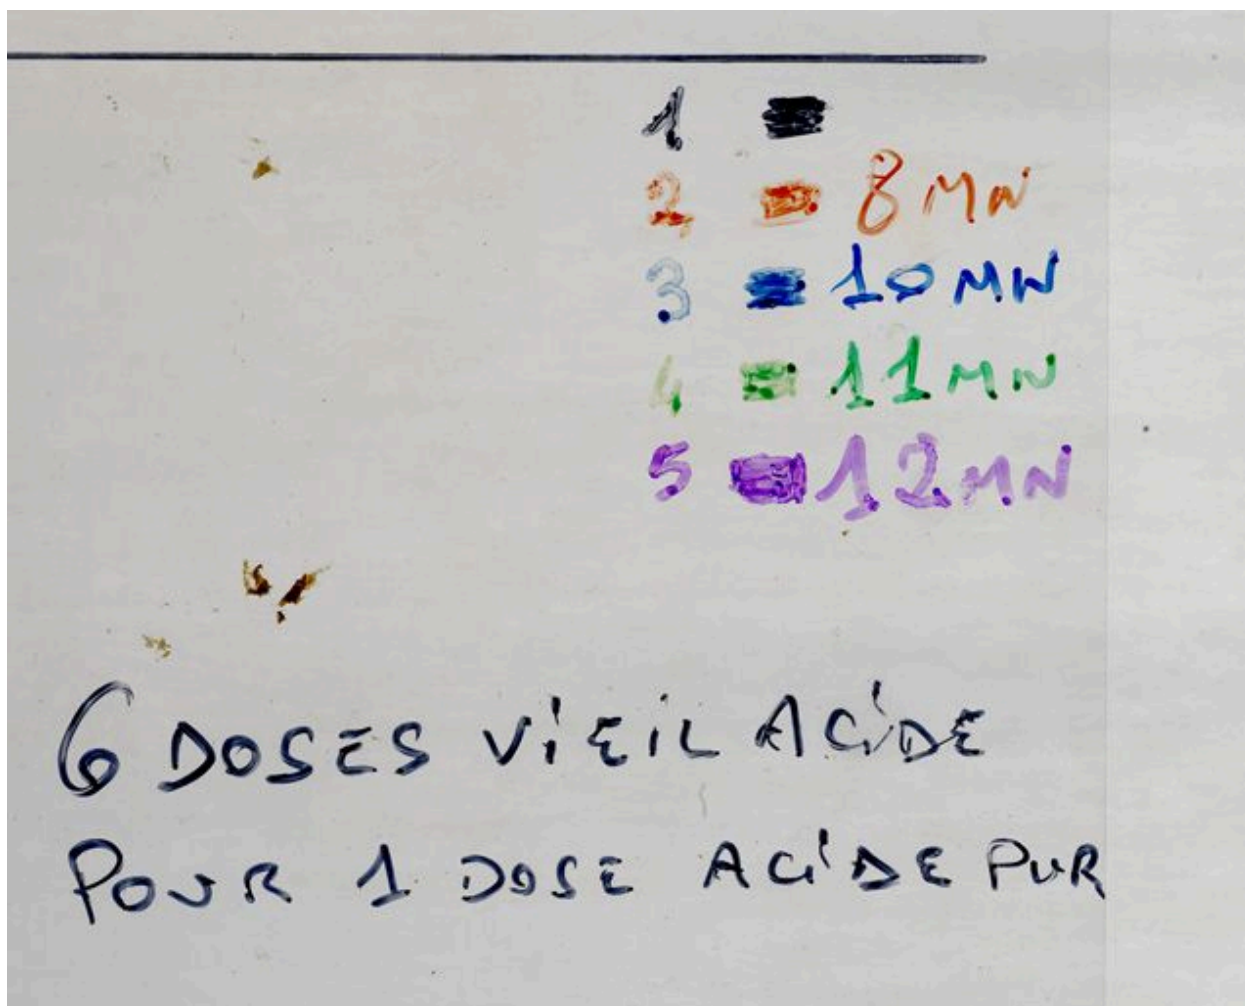 1
2 8 MN
3 10 MN
4 11 MN
5 12 MN
6 DOSES VIEIL ACIDE
POUR 1 DOSE ACIDE PUR